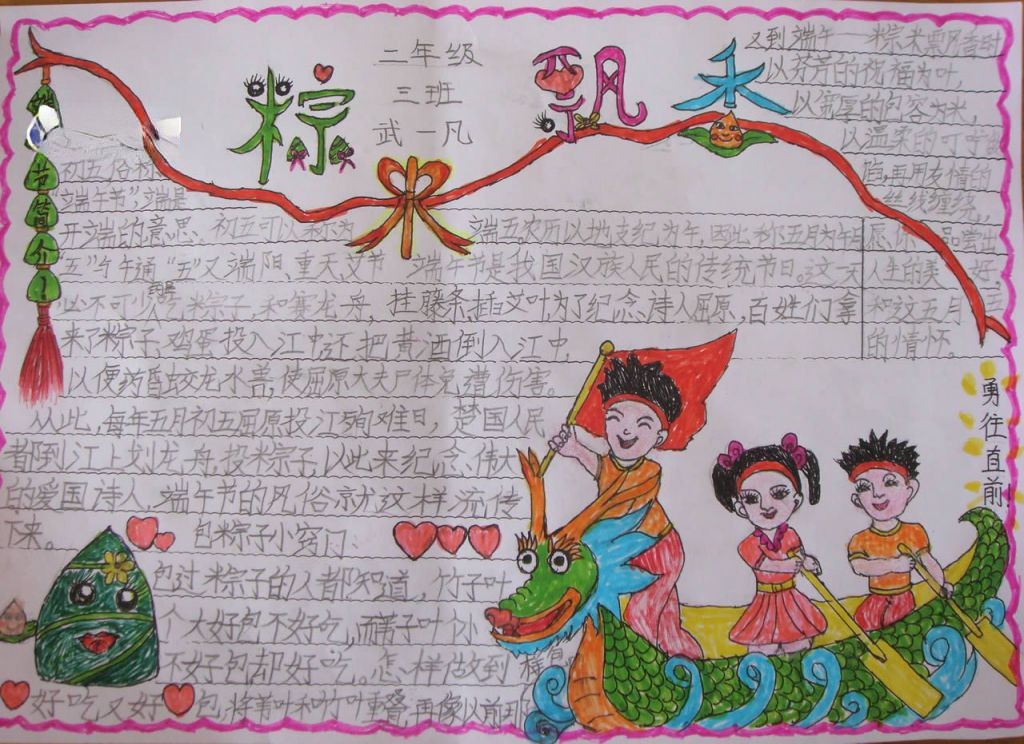 粽米飘禾
二年级
三班
武一凡
又到端午——粽米飘香时
以芬芳的祝福为叶，
以宽厚的包容为米，
以温柔的叮咛做
馅，再用友情的
丝线缠绕，
愿你品尝出
人生的美好，
和这五月
的情怀。
节简介
初五俗称
“端午节”，端是
开端的意思、初五可以称为端五农历以地支纪为午，因此称五月为午
五”与午通“五”又端阳、重天、艾节 端午节是我国汉族人民的传统节日。这一天
必不可少是吃粽子，和赛龙舟，挂藤条，插艾叶为了纪念，诗人屈原，百姓们拿
来了粽子、鸡蛋投入江中还把黄酒倒入江中，
以便药昏蛟龙水兽，使屈原大夫尸体免遭伤害。
从此，每年五月初五屈原投江殉难日，楚国人民
都到江上划龙舟，投米宗子，以此来纪念，伟大
的爱国诗人，端午节的风俗就这样流传
下来。
包粽子小窍门：
包过粽子的人都知道，竹子叶
个大好包不好吃，而苇子叶
不好包却好吃。怎样做到
好吃又好包，将苇叶和竹叶重叠，再像以前那
样包
勇往直前